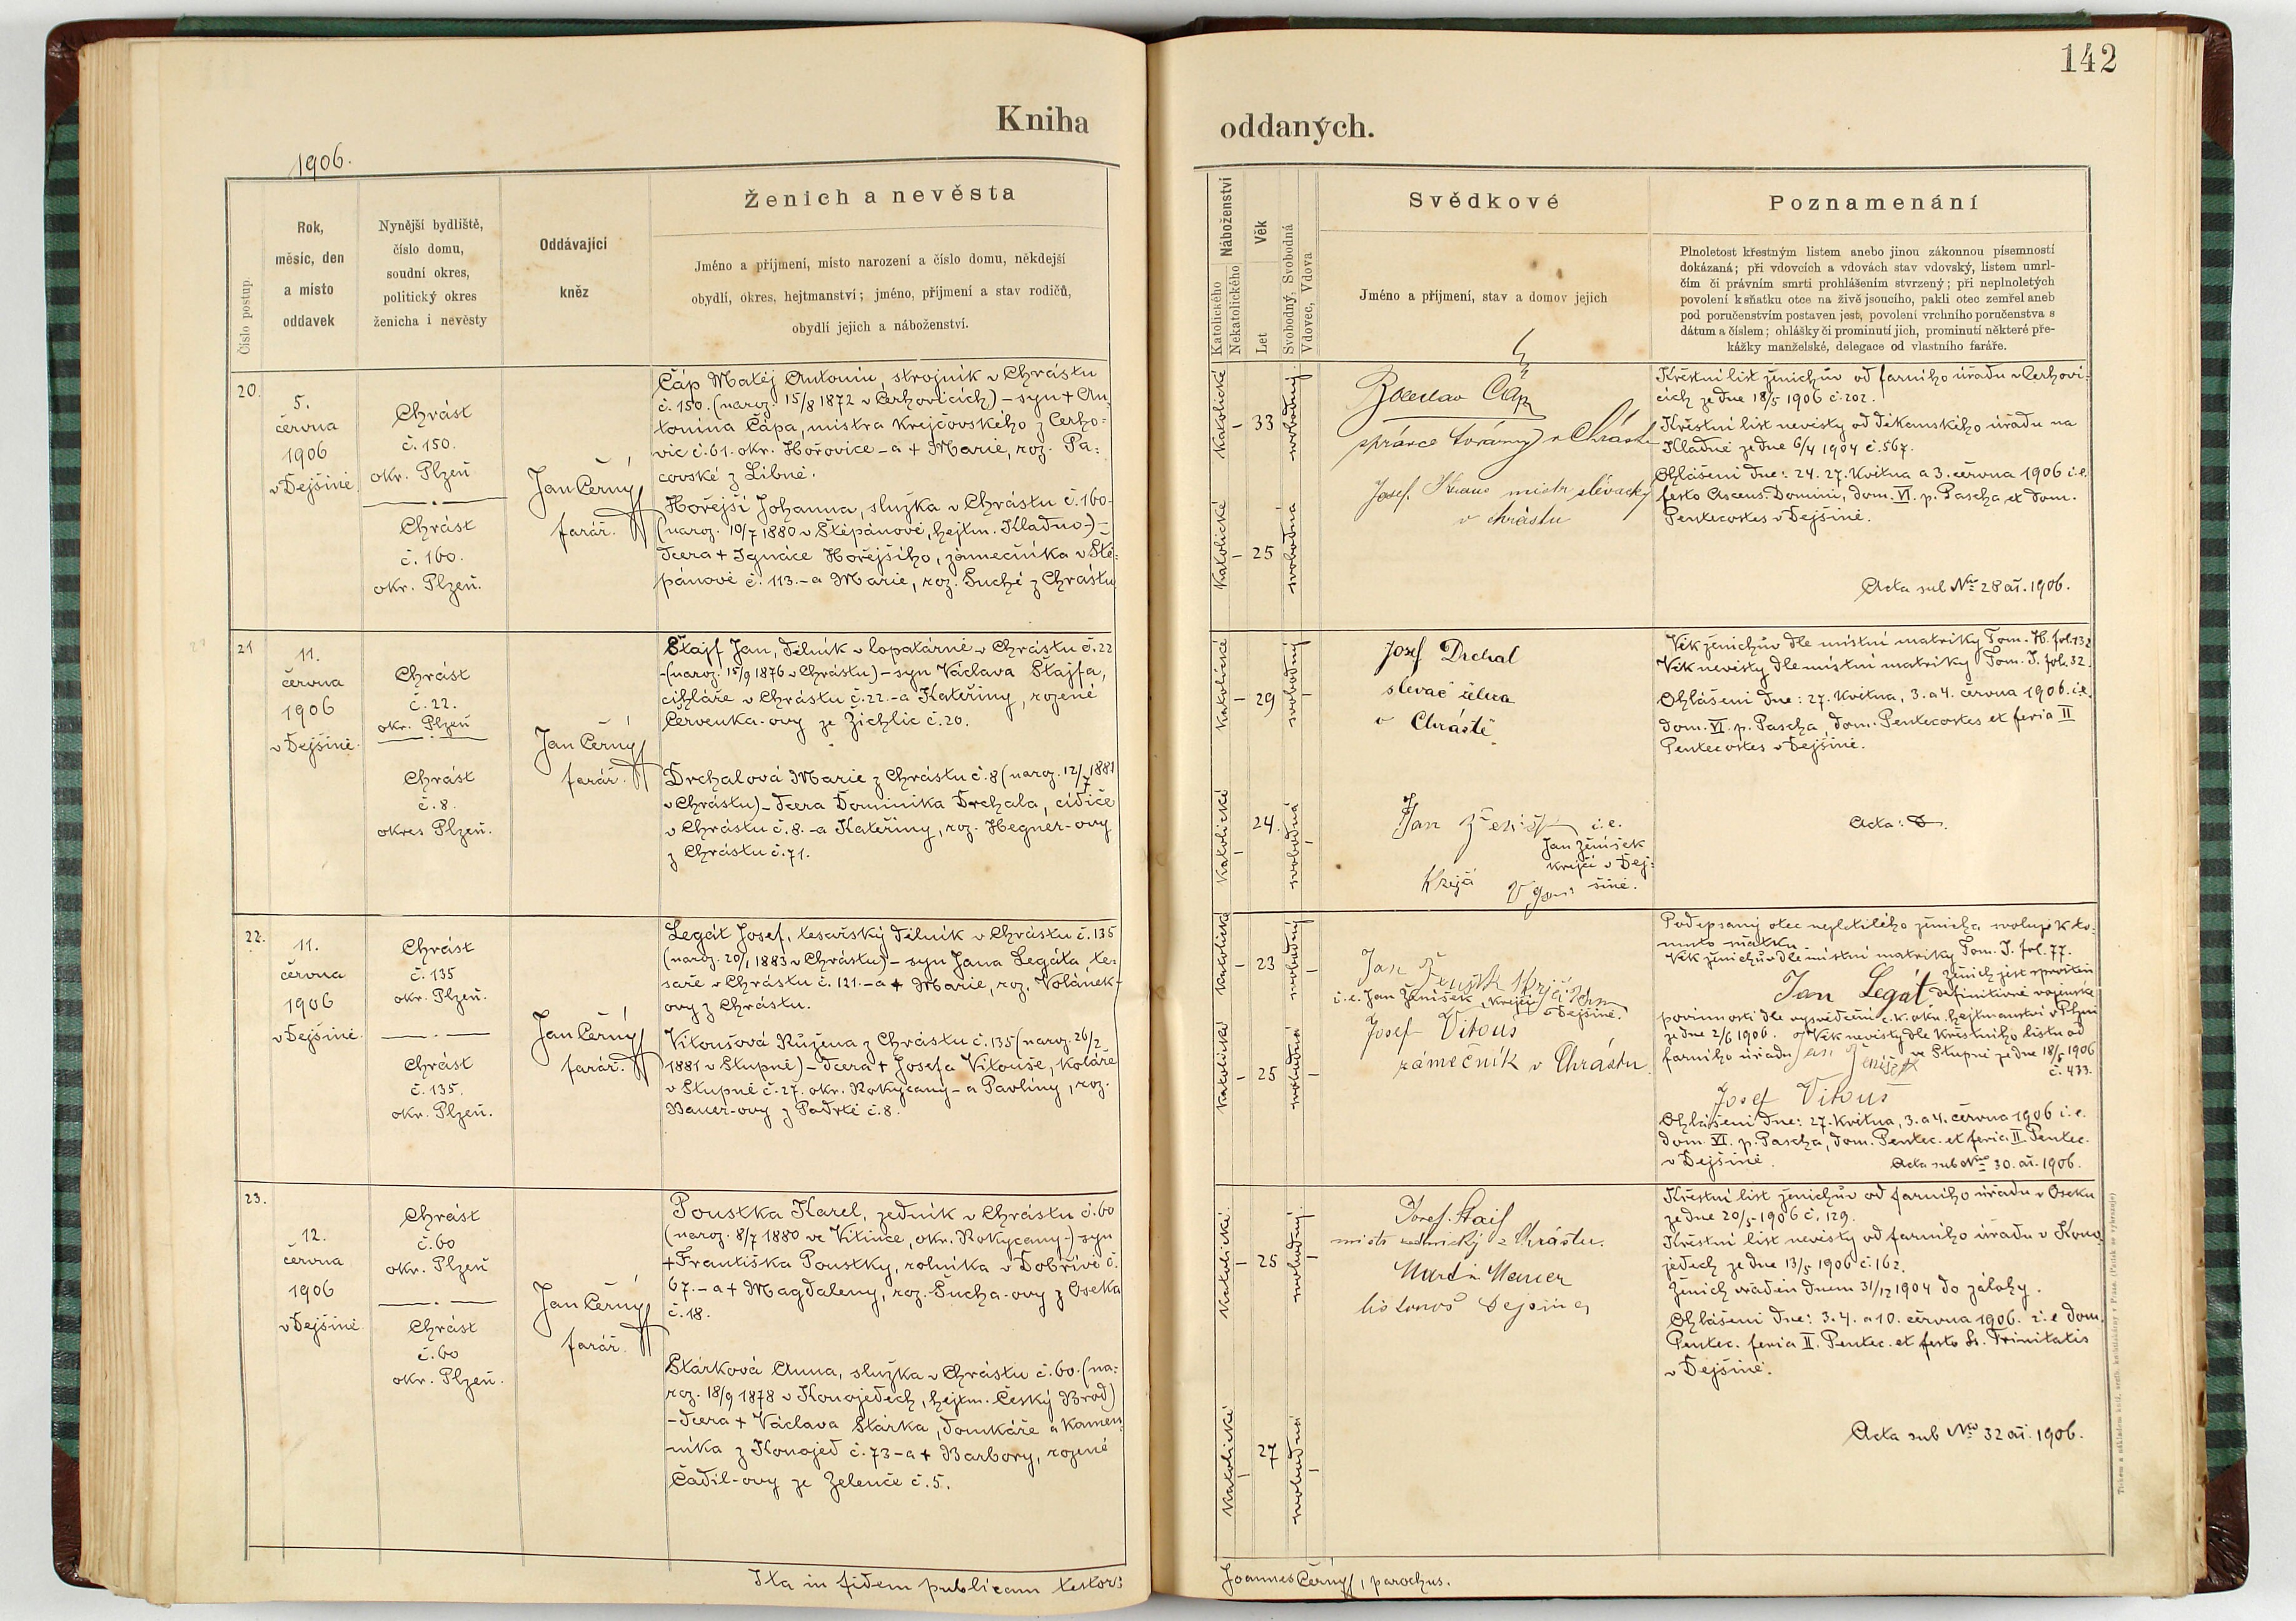 142
Kniha
oddaných.
1906.
Číslo postup.
Rok,
měsíc, den
a místo
oddavek
Nynější bydliště,
číslo domu,
soudní okres,
politický okres
ženicha i nevěsty
Oddávající
kněz
Ženich a nevěsta
Jméno a příjmení, místo narození a číslo domu, někdejší
obydlí, okres, hejtmanství; jméno, příjmení a stav rodičů,
obydlí jejich a náboženství.
Náboženství
Katolického
Nekatolického
Věk
Let
Svobodný, Svobodná
Vdovec, Vdova
Svědkové
Jméno a příjmení, stav a domov jejich
Poznamenání
Plnoletost křestným listem anebo jinou zákonnou písemností
dokázaná; při vdovcích a vdovách stav vdovský, listem umrl-
čím či právním smrti prohlášením stvrzený; při neplnoletých
povolení k sňatku otce na živě jsoucího, pakli otec zemřel aneb
pod poručenstvím postaven jest, povolení vrchního poručenstva s
dátum a číslem; ohlášky či prominutí jich, prominutí některé pře-
kážky manželské, delegace od vlastního faráře.
20.
5.
června
1906
v Dejšině.
Chrást
č. 150.
okr. Plzeň
Chrást
č. 160.
okr. Plzeň.
Jan Černý
farář.
Čáp Matěj Antonín, strojník v Chrástu
č. 150. (naroz. 15/8 1872 v Cerhovicích) – syn + An-
tonína Čápa, mistra krejčovského z Cerho=
vic č. 61. okr. Hořovice – a + Marie, roz. Pa=
covské z Libně.
Hořejší Johanna, služka v Chrástu č. 160-
(naroz. 10/7 1880 v Štěpánově, hejtm. Kladno-) –
dcera + Ignáce Hořejšího, zámečníka v Ště=
pánově č. 113. – a Marie, roz. Suché z Chrástu
katolické
33
svobodný
katolické
25
svobodná
Čáp
správce továrny v Chrástě
Josef mistr slévačský
v Chrástu
Křestní list ženichův od farního úřadu v Cerhovi-
cích ze dne 18/5 1906 č. 202.
Křestní list nevěsty od děkanského úřadu na
Kladně ze dne 6/4 1904 č. 567.
Ohlášeni dne: 24. 27. května a 3. června 1906 i.e.
festo Ascens. Domini, dom. VI. p. Pascha et dom.
Pentecostes v Dejšině.
Acta sub No 28 ai. 1906.
21
11.
června
1906
v Dejšině.
Chrást
č. 22.
okr. Plzeň
Chrást
č. 8.
okres Plzeň.
Jan Černý
farář.
Štajf Jan, dělník v lopatárně v Chrástu č. 22
-(naroz. 15/9 1876 v Chrástu) – syn Václava Štajfa,
cihláře v Chrástu č. 22. – a Kateřiny, rozené
Červenka-ovy ze Žichlic č. 20.
Drchalová Marie z Chrástu č. 8 (naroz. 12/7 1881
v Chrástu) – dcera Dominika Drchala, cídiče
v Chrástu č. 8. – a Kateřiny, roz. Hegner-ovy
z Chrástu č. 71.
katolické
29
svobodný
katolické
24.
svobodná
Josef Drchal
slevač železa
v Chrástě
Jan Ženíšek i.e.
Jan Ženíšek
krejčí v Dej=
šině.
Krejčí
Věk ženichův dle místní matriky Tom. H. fol. 132
Věk nevěsty dle místní matriky Tom. I. fol. 32.
Ohlášeni dne: 27. května, 3. a 4. června 1906. i.e.
dom. VI. p. Pascha, dom. Pentecostes et feria II
Pentecostes v Dejšině.
Acta:
22.
11.
června
1906
v Dejšině.
Chrást
č. 135
okr. Plzeň.
Chrást
č. 135.
okr. Plzeň.
Jan Černý
farář.
Legát Josef, tesařský dělník v Chrástu č. 135
(naroz. 20/1 1883 v Chrástu) – syn Jana Legáta te-
saře v Chrástu č. 121. – a + Marie, roz. Volánek-
ovy z Chrástu.
Vitoušová Růžena z Chrástu č. 135 (naroz. 26/2
1881 v Stupně) – dcera + Josefa Vitouše, koláře
v Stupně č. 27. okr. Rokycany – a Pavlíny, roz.
Bauer-ovy z Padrtě č. 8.
katolické
23
svobodný
katolické
25
svobodná
Jan Ženíšek
i.e. Jan Ženíšek, krejčí v Dejšině.
Josef Vitouš
zámečník v Chrástu
Podepsaný otec nezletilého ženicha svoluje k to-
muto sňatku
Věk ženichův dle místní matriky Tom. I. fol. 77.
Ženich jest sproštěn
Jan Legát definitivně vojenské
povinnosti dle vysvědčení c. k. okr. hejtmanství v Plzni
ze dne 2/6 1906. Věk nevěsty dle křestního listu od
farního úřadu ve Stupně ze dne 18/5 1906
č. 433.
Jan Ženíšek
Josef Vitouš
Ohlášeni dne: 27. května, 3. a 4. června 1906 i.e.
dom. VI. p. Pascha, dom. Pentec. et feria II. Pentec.
v Dejšině.
Acta sub No 30. ai. 1906.
23.
12.
června
1906
v Dejšině
Chrást
č. 60
okr. Plzeň
Chrást
č. 60
okr. Plzeň.
Jan Černý
farář.
Poustka Karel, zedník v Chrástu č. 60
(naroz. 8/7 1880 ve Vitince, okr. Rokycany-) syn
+ Františka Poustky, rolníka v Dobřívě č.
67. – a + Magdaleny, roz. Šucha-ovy z Oseka
č. 18.
Stárková Anna, služka v Chrástu č. 60. (na=
roz. 18/9 1878 v Konojedech, hejtm. Český Brod)
– dcera + Václava Stárka, domkáře a kamen=
níka z Konojed č. 73 – a + Barbory, rozené
Čadil-ovy ze Zelenče č. 5.
katolické
25
svobodný
katolické
27
svobodná
Josef Štaif
mistr zednický z Chrástu.
Martin
listonoš Dejšina
Křestní list ženichův od farního úřadu v Oseku
ze dne 20/5 1906 č. 129.
Křestní list nevěsty od farního úřadu v Kono-
jedech ze dne 13/5 1906 č. 162.
Ženich vřaděn dnem 31/12 1904 do zálohy.
Ohlášeni dne: 3. 4. a 10. června 1906. i.e dom.
Pentec. feria II. Pentec. et festo Ss. Trinitatis
v Dejšině.
Acta sub No 32 ai. 1906.
Ita in fidem publicam testor:
Joannes Černý, parochus.